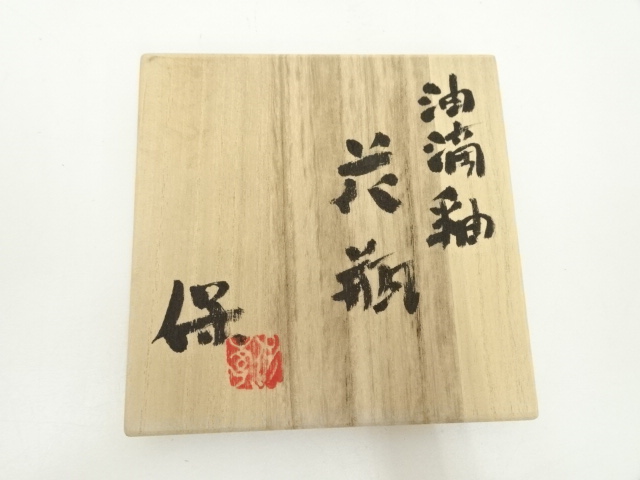 油滴釉
花瓶
保